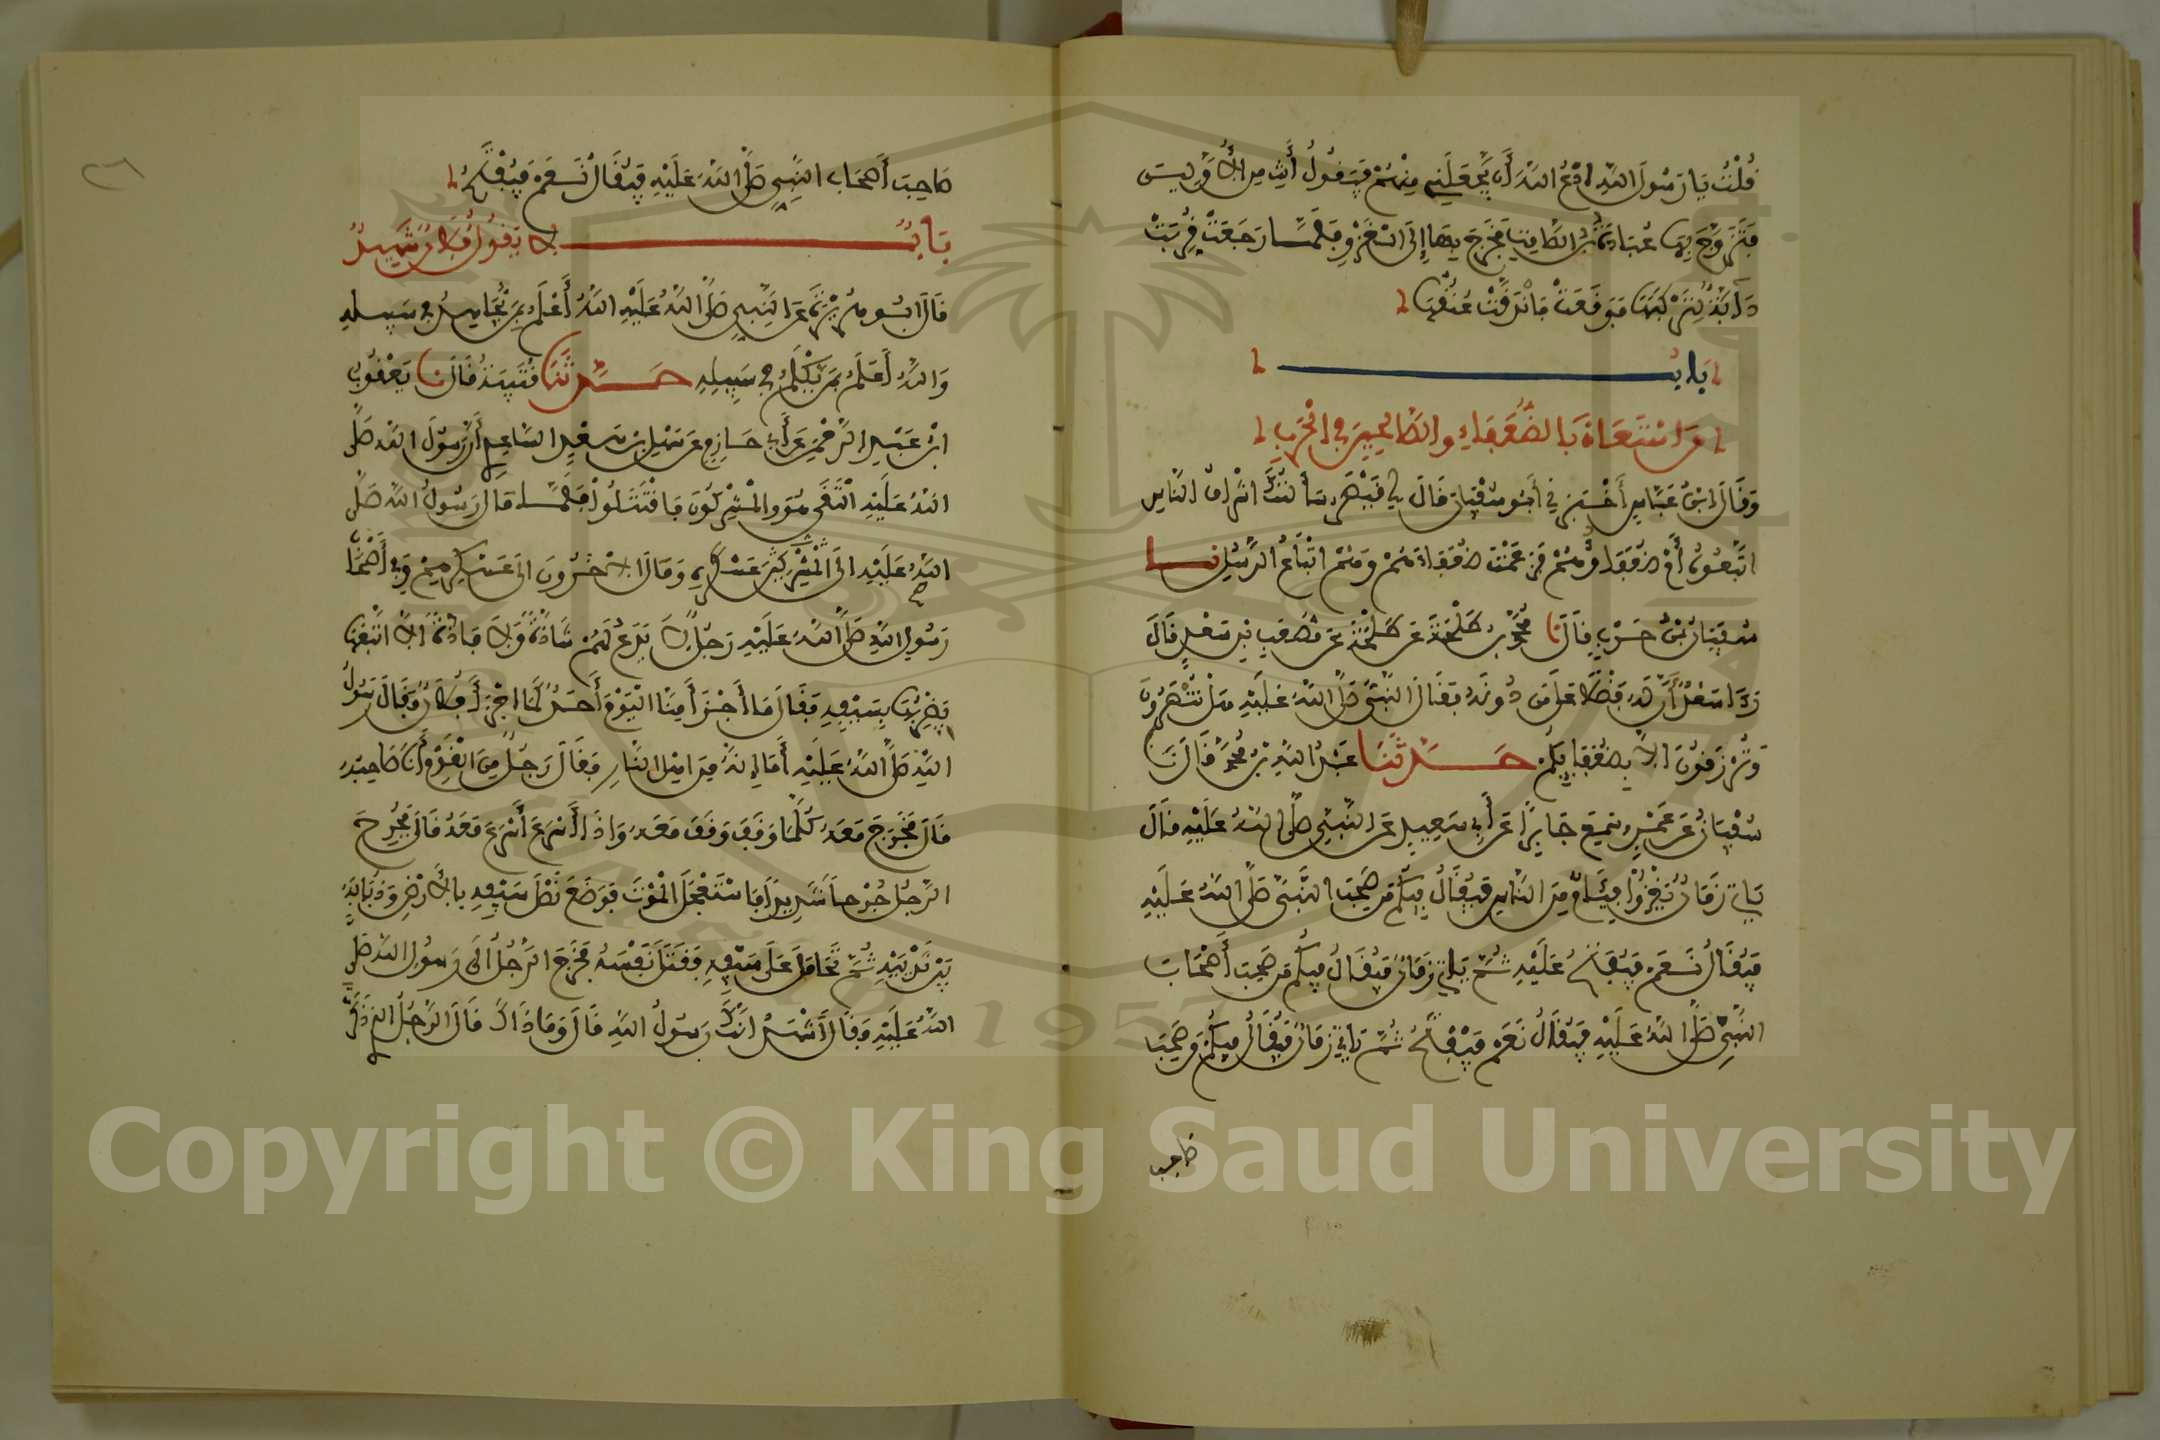 قُلْتُ يَا رَسُولَ اللهِ ادْعُ اللهَ أَنْ يَّجْعَلَنِي مِنْهُمْ فَيَقُولُ أَنْتِ مِنَ الأَوَّلِينَ
فَتَزَوَّجَ بِهَا عُبَادَةُ بْنُ الصَّامِتِ فَخَرَجَ بِهَا إِلَى الْغَزْوِ فَلَمَّا رَجَعَتْ قُرِّبَتْ
دَابَّةٌ لِتَرْكَبَهَا فَوَقَعَتْ فَانْدَقَّتْ عُنُقُهَا
بَابُ
مَنِ اسْتَعَانَ بِالضُّعَفَاءِ والصَّالِحِينَ في الْحَرْبِ
وَقَالَ ابْنُ عَبَّاسٍ أَخْبَرَنِي أَبُو سُفْيَانَ قَالَ لِي قَيْصَرُ سَأَلْتُكَ أَشْرَافُ النَّاسِ
اتَّبَعُوهُ أَمْ ضُعَفَاؤُهُمْ فَزَعَمْتَ ضُعَفَاءَهُمْ وَهُمْ أَتْبَاعُ الرُّسُلِ نا
سُلَيْمَانُ بْنُ حَرْبٍ قَالَ نَا مُحَمَّدُ بْنُ طَلْحَةَ عَنْ طَلْحَةَ عَنْ مُصْعَبِ بْنِ سَعْدٍ قَالَ
رَءَا سَعْدٌ أَنَّ لَهُ فَضْلًا عَلَى مَن دُونَهُ فَقَالَ النَّبِيُّ صَلَّى اللهُ عَلَيْهِ هَلْ تُنْصَرُونَ
وَتُرْزَقُونَ إِلاَّ بِضُعَفَائِكُمْ حَدَّثَنَا عَبْدُ اللهِ بْنُ مُحَمَّدٍ قَالَ نَا
سُفْيَانُ عَنْ عَمْرٍو سَمِعَ جَابِرًا عَنْ أَبِي سَعِيدٍ عَنِ النَّبِيِّ صَلَّى اللهُ عَلَيْهِ قَالَ
يَاتِي زَمَانٌ يَغْزُوا فِئَامٌ مِنَ النَّاسِ فَيُقَالُ فِيكُمْ مَنْ صَحِبَ النَّبِيَّ صَلَّى اللهُ عَلَيْهِ
فَيُقَالُ نَعَمْ فَيُفْتَحُ عَلَيْهِ ثُمَّ يَاتِي زَمَانٌ فَيُقَالُ فِيكُمْ مَنْ صَحِبَ أَصْحَابَ
النَّبِيِّ صَلَّى اللهُ عَلَيْهِ فَيُقَالُ نَعَمْ فَيُفْتَحُ ثُمَّ يَاتِي زَمَانٌ فَيُقَالُ فِيكُمْ مَنْ صَحِبَ
صاحب
٢٦
صَاحِبَ أَصْحَابِ النَّبِيِّ صَلَّى اللهُ عَلَيْهِ فَيُقَالُ نَعَمْ فَيُفْتَحُ
بَابُ لاَ يَقُولُ فُلاَنٌ شَهِيدٌ
قَالَ أَبُو هُرَيْرَةَ عَنِ النَّبِيِّ صَلَّى اللهُ عَلَيْهِ اللهُ أَعْلَمُ بِمَنْ يُّجَاهِدُ فِي سَبِيلِهِ
وَاللهُ أَعْلَمُ بِمَنْ يُكْلَمُ فِي سَبِيلِهِ حَدَّثَنَا قُتَيْبَةُ قَالَ نا يَعْقُوبُ
ابْنُ عَبْدِ الرَّحْمَنِ عَنْ أَبِي حَازِمٍ عَنْ سَهْلِ بْنِ سَعْدٍ السَّاعِدِيِّ أَنَّ رَسُولَ اللهِ صَلَّى
اللهُ عَلَيْهِ الْتَقَى هُوَ وَالْمُشْرِكُونَ فَاقْتَتَلُوا فَلَمَّا مَالَ رَسُولُ اللهِ صَلَّى
اللهُ عَلَيْهِ إِلَى عَسْكَرِهِ وَمَالَ الآخَرُونَ إِلَى عَسْكَرِهِمْ وَفِي أَصْحَابِ
رَسُولِ اللهِ صَلَّى اللهُ عَلَيْهِ رَجُلٌ لَا يَدَعُ لَهُمْ شَاذَّةً وَلَا فَاذَّةً إِلَّا اتَّبَعَهَا
يَضْرِبُهَا بِسَيْفِهِ فَقَالَ مَا أَجْزَأَ مِنَّا الْيَوْمَ أَحَدٌ كَمَا أَجْزَأَ فُلَانٌ فَقَالَ رَسُولُ
اللهِ صَلَّى اللهُ عَلَيْهِ أَمَا إِنَّهُ مِنْ أَهْلِ النَّارِ فَقَالَ رَجُلٌ مِنَ الْقَوْمِ أَنَا صَاحِبُهُ
قَالَ فَخَرَجَ مَعَهُ كُلَّمَا وَقَفَ وَقَفَ مَعَهُ وَإِذَا أَسْرَعَ أَسْرَعَ مَعَهُ قَالَ فَجُرِحَ
الرَّجُلُ جُرْحًا شَدِيدًا فَاسْتَعْجَلَ الْمَوْتَ فَوَضَعَ نَصْلَ سَيْفِهِ بِالأَرْضِ وَذُبَابَهُ
بَيْنَ ثَدْيَيْهِ ثُمَّ تَحَامَلَ عَلَى سَيْفِهِ فَقَتَلَ نَفْسَهُ فَخَرَجَ الرَّجُلُ إِلَى رَسُولِ اللهِ صَلَّى
اللهُ عَلَيْهِ فَقَالَ أَشْهَدُ أَنَّكَ رَسُولُ اللهِ قَالَ وَمَا ذَاكَ قَالَ الرَّجُلُ الَّذِي ذَكَرْتَ
Copyright © King Saud University
1957